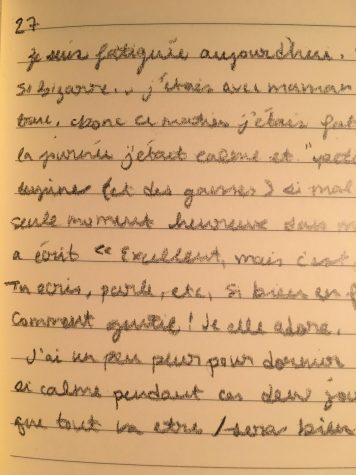 27
je suis fatiguée aujourd'hui.
si bizarre.. j'étais avec maman
donc ce matin j'étais fat
la journée j'étais calme et "
(et des games) si mal
seule moment heureuse dans m
a écrit "Excellent, mais c'est
Tu ecris, parle, etc, si bien en f
Comment gentil! Je elle adore.
J'ai un peu peur pour dormir
si calme pendant ces deux jou
que tout va etre /sera bien